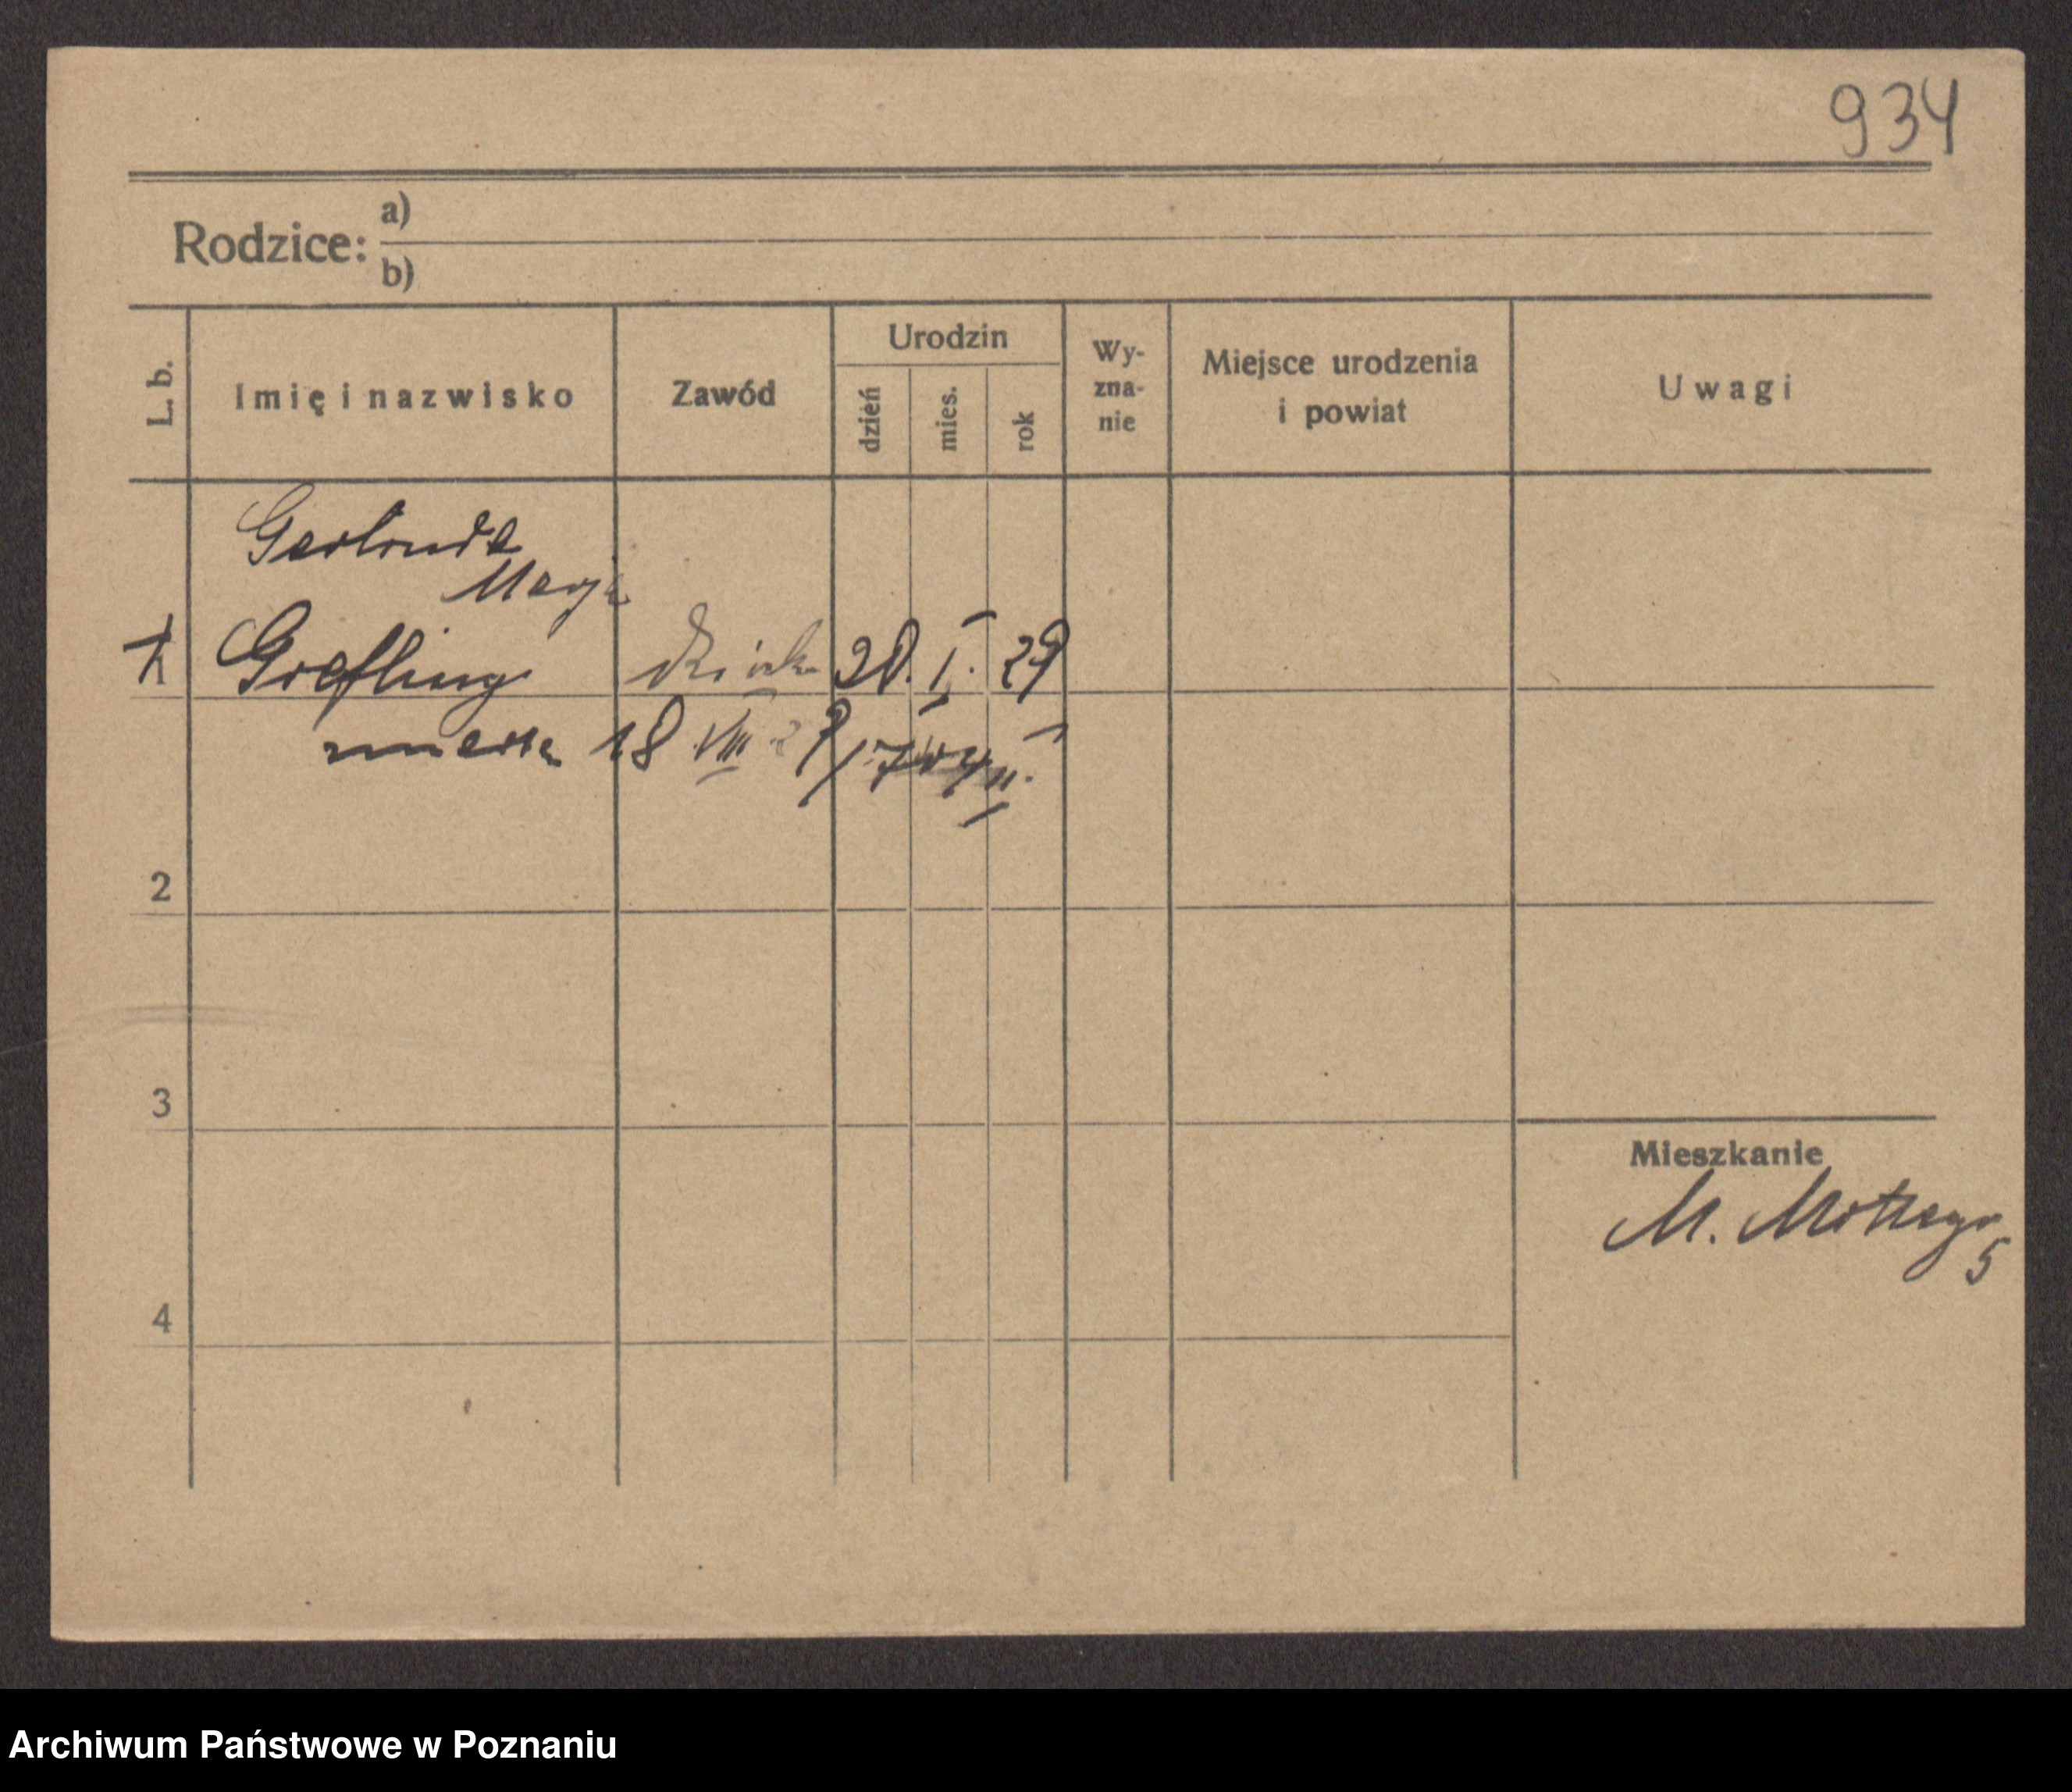 934
Rodzice: a)
b)
L. b.
Imię i nazwisko
Zawód
Urodzin
dzień
mies.
rok
Wy-
zna-
nie
Miejsce urodzenia
i powiat
Uwagi
Gertruda
Marja
1 Grefling dziecko 20. I. 29
zmarła 18 VIII 29
2
3
Mieszkanie
M. Mottego
5
4
Archiwum Państwowe w Poznaniu